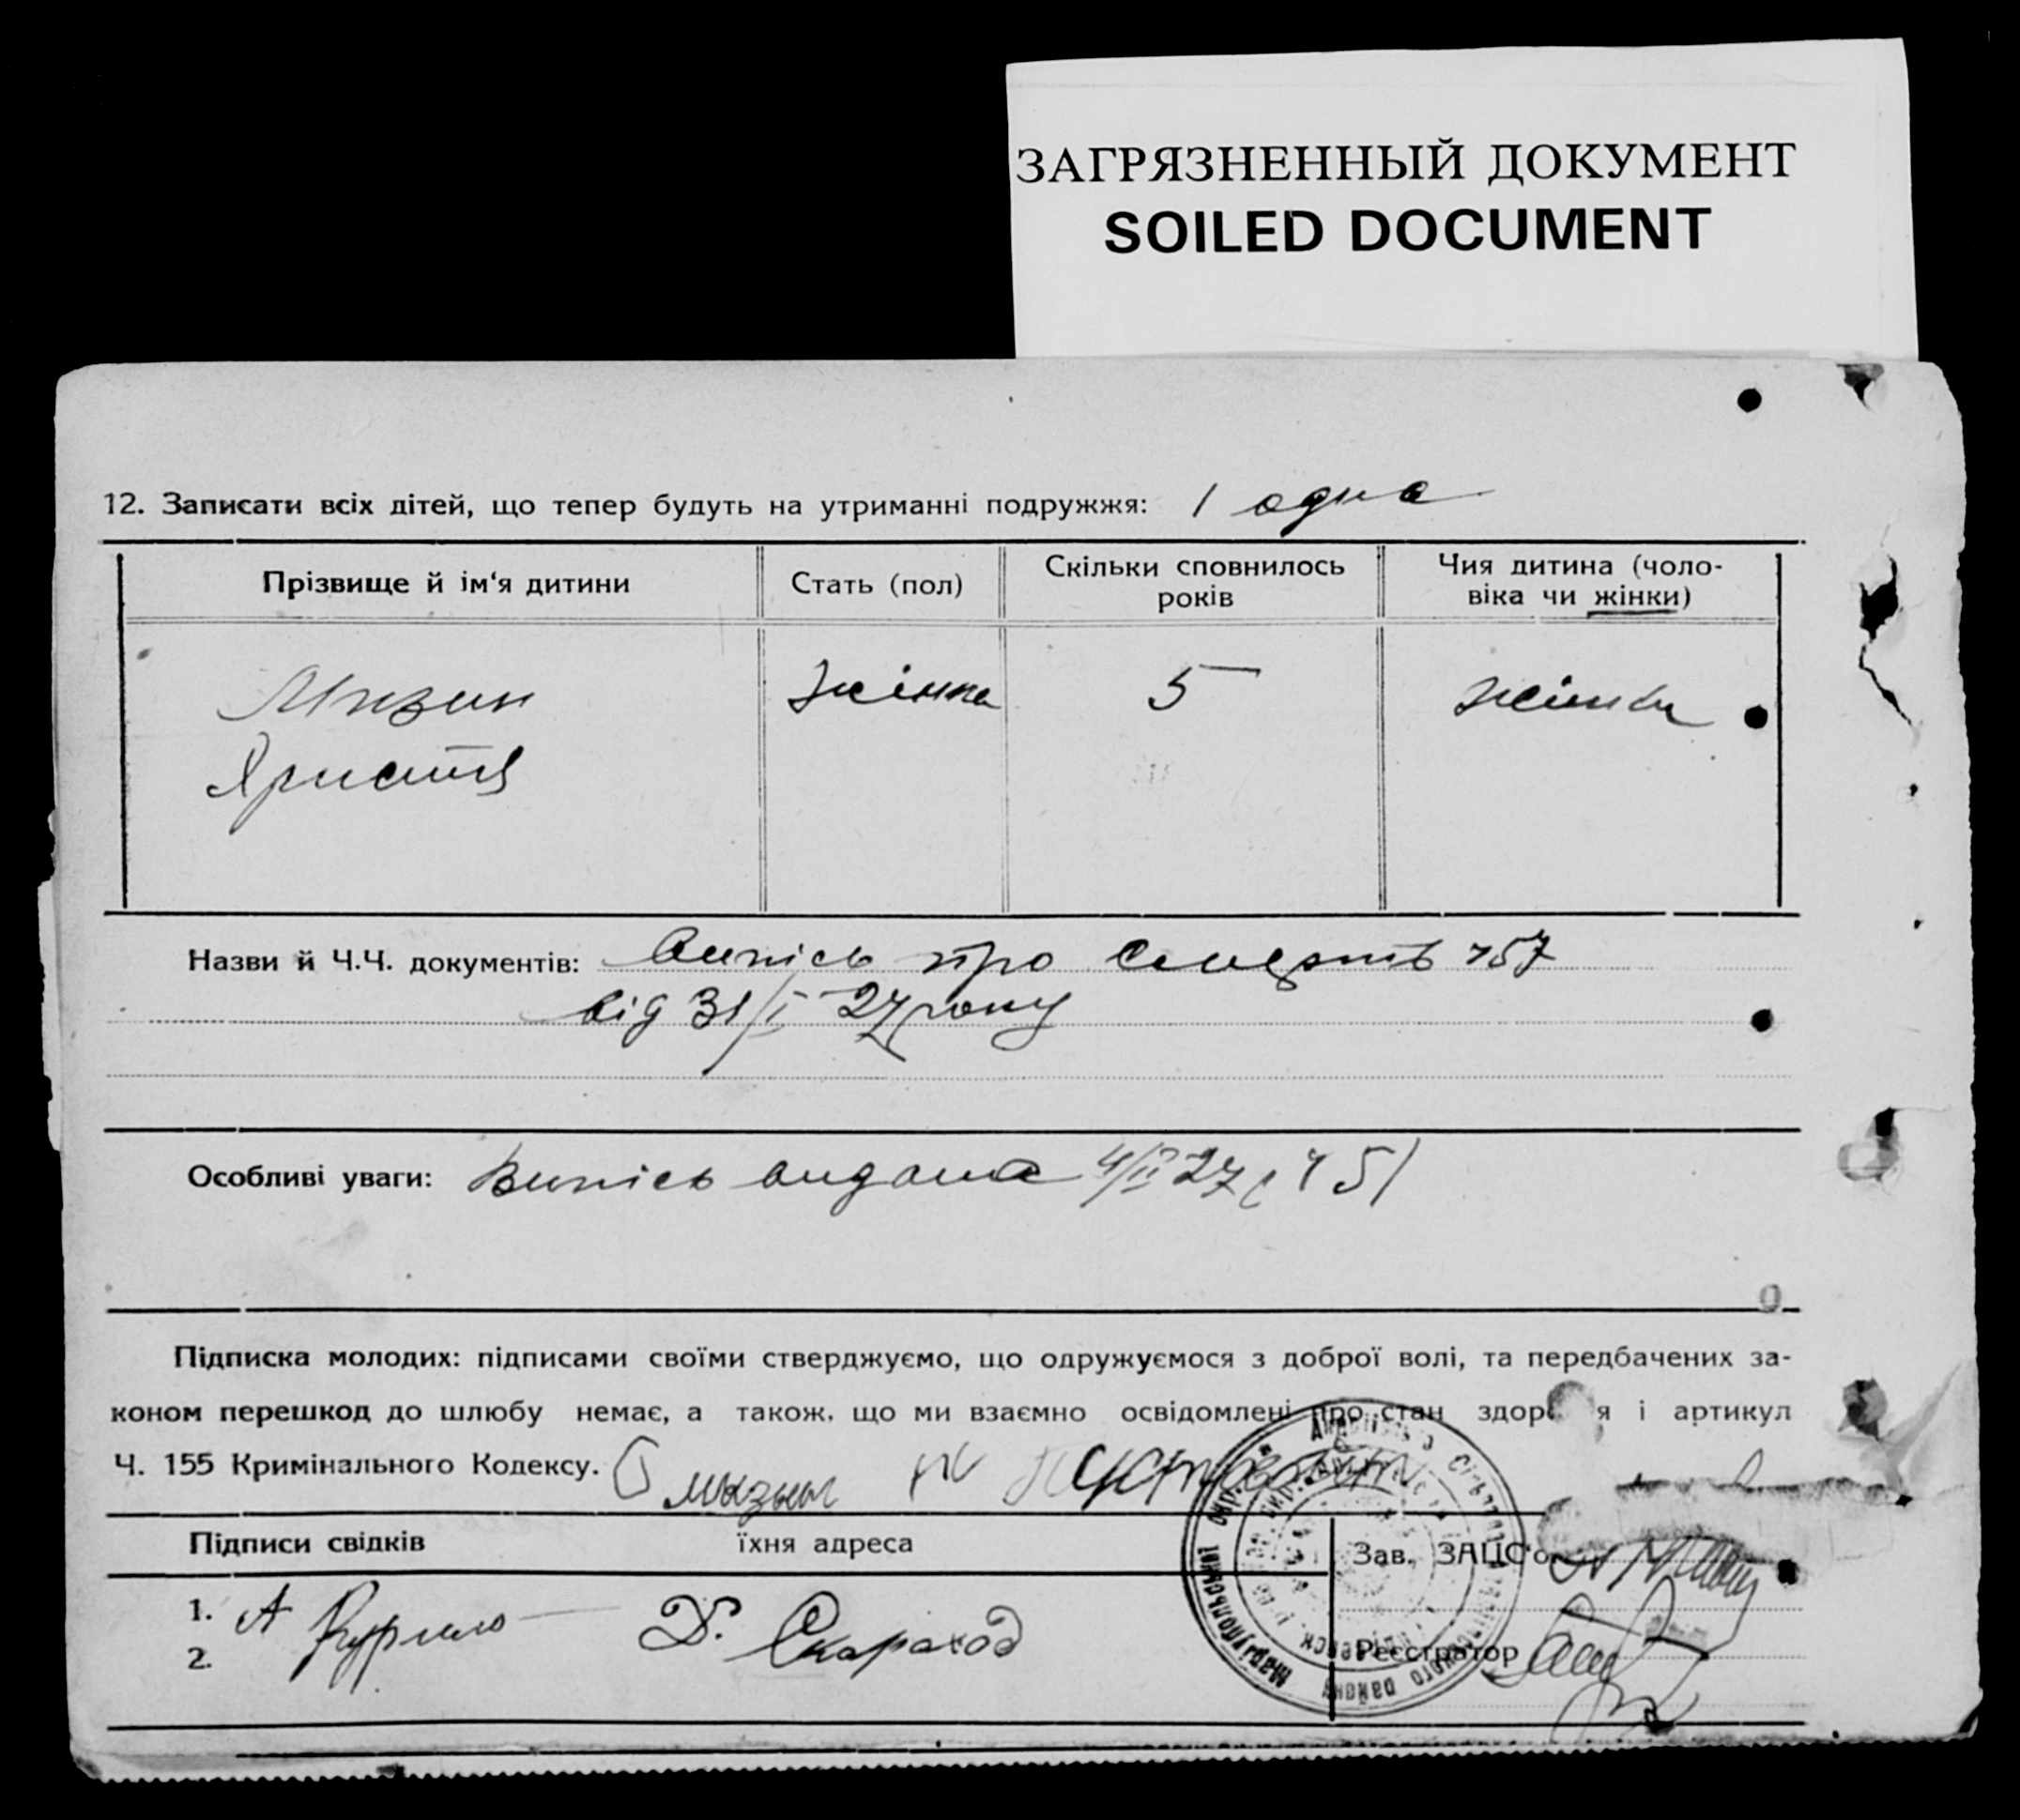 ЗАГРЯЗНЕННЫЙ ДОКУМЕНТ
SOILED DOCUMENT
12. Записати всіх дітей, що тепер будуть на утриманні подружжя: 1 одна
Прізвище й ім‘я дитини
Стать (пол)
Скільки сповнилось
років
Чия дитина (чоло-
віка чи жінки)
Мизин
жінка
5
жінки
Назви й Ч.Ч. документів: Випісь про смерть ч57
від 31/I 27 року
Особливі уваги: Випісь видана 4/II 27 р ч 51
Підписка молодих: підписами своїми стверджуємо, що одружуємося з доброї волі, та передбачених за-
коном перешкод до шлюбу немає, а також, що ми взаємно освідомлені про стан здор я і артикул
Ч. 155 Кримінального Кодексу. мызын
Підписи свідків
їхня адреса
Зав. ЗАЦС'о
1. А Курило Д. Скараход
2.
Реєстратор